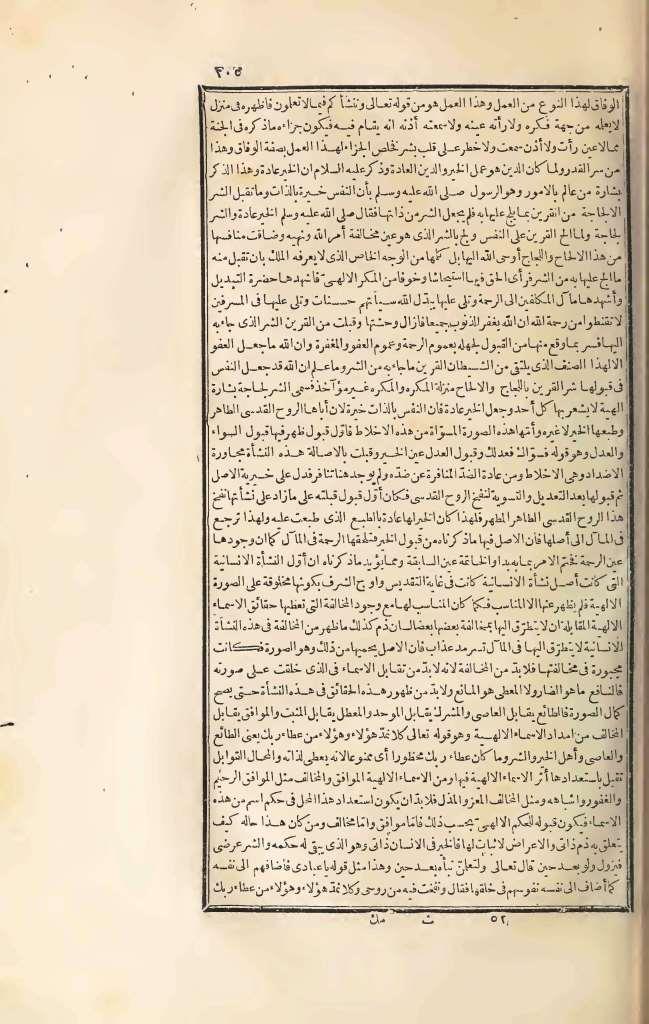 ٤٠٩
الوفاق لهذا النوع من العمل وهذا العمل هو من قوله تعالى وننشأ كم فيما لا تعلمون فاظهره فى منزل
لا يعلمه من جهة فكره ولا رأته عينه ولا سمعته أذنه انه يقام فيه فيكون جزاءه ما ذكره فى الجنة
مما لا عين رأت ولا أذن سمعت ولا خطر على قلب بشر فخلص الجزاء لهذا العمل بصفة الوفاق وهذا
من سر القدر ولما كان الدين هو عمل الخير والدين العادة وذكر عليه السلام ان الخير عادة وهذا الذكر
بشارة من عالم بالامور وهو الرسول صلى الله عليه وسلم بأن النفس خيرة بالذات وما تقبل الشر
الا لجاجة من القرين بما يلج عليها به فلم يجعل الشر من ذاتها فقال صلى الله عليه وسلم الخير عادة والشر
لجاجة ولما الح القرين على النفس ولج بالشر الذى هو عين مخالفة أمر الله ونهيه وضاقت منافسها
من هذا الالحاح واللجاج أوحى الله اليها بل كلمها من الوجه الخاص الذى لا يعرفه الملك بان تقبل منه
ما الح عليها به من الشر فرأى الحق فيها استيحاشا وخوفا من المكر الالهى فأشهدها حضرة التبديل
وأشهدها ما آل المكلفين الى الرحمة وتلى عليها يبدل الله سيآتهم حسنات وتلى عليها فى المسرفين
لا تقنطوا من رحمة الله ان الله يغفر الذنوب جميعا فازال وحشتها وقبلت من القرين الشر الذى جاء به
اليها فسر بما وقع منها من القبول لجهله بعموم الرحمة وعموم العفو والمغفرة وان الله ما جعل العفو
الا لهذا الصنف الذى يلتقى من الشيطان القرين ما جاء به من الشر وما علم ان الله قد جعل النفس
فى قبولها شر القرين باللجاج والالحاح منزلة المكره والمكره غير مؤآخذ فسمى الشر لجاجة بشارة
الهية لا يشعر بها كل أحد وجعل الخير عادة فان النفس بالذات خيرة لان أباها الروح القدسى الطاهر
وطبعها الخير لا غيره وأتتها هذه الصورة المسواة من هذه الاخلاط فاول قبول ظهر فيها قبول السواء
والعدل وهو قوله فسواك فعدلك وقبول العدل عين الخير وقبلت بالاصالة هذه النشأة مجاورة
الاضداد وهى الاخلاط ومن عادة الضد المنافرة عن ضده ولم يوجد هنا تنافر فدل على خيرية الاصل
ثم قبولها بعد التعديل والتسوية لنفخ الروح القدسى فكان أول قبول قبلته على مازاد على نشأتها نفخ
هذا الروح القدسى الطاهر المطهر فلهذا كان الخير لها عادة بالطبع الذى طبعت عليه ولهذا ترجع
فى المآل الى أصلها فان الاصل فيها ما ذكرناه من قبول الخير فتلحقها الرحمة فى المآل كما ان وجودها
عين الرحمة فختم الامر بما به بدا والخاتمة عين السابقة ومما يؤيد ما ذكرناه ان أول النشأة الانسانية
التى كانت أصل نشأة الانسانية كانت فى غاية التقديس واوج الشرف بكونها مخلوقة على الصورة
الالهية فلم يظهر عنها الا المناسب فكما كان المناسب لها مع وجود المخالفة التى تعطيها حقائق الاسماء
الالهية المتقابلة ان لا يتطرق اليها بمخالفة بعضها بعضا لسان ذم كذلك ما ظهر من المخالفة فى هذه النشأة
الانسانية لا يتطرق اليها فى المآل تسرمد عذاب فان الاصل يحميها من ذلك وهو الصورة فكانت
مجبورة فى مخالفتها فلا بد من المخالفة لانه لا بد من تقابل الاسماء فى الذى خلقت على صورته
فالنافع ما هو الضار ولا المعطى هو المانع ولا بد من ظهور هذه الحقائق فى هذه النشأة حتى يصح
كمال الصورة فالطائع يقابل العاصى والمشرك يقابل الموحد والمعطل يقابل المثبت والموافق يقابل
المخالف من امداد الاسماء الالهية وهو قوله تعالى كلا نمد هؤلاء وهؤلاء من عطاء ربك يعنى الطائع
والعاصى وأهل الخير والشر وما كان عطاء ربك محظورا أى ممنوعا لانه يعطى لذاته والمحال القوابل
تقبل باستعدادها أثر الاسماء الالهية فيها ومن الاسماء الالهية الموافق والمخالف مثل الموافق الرحيم
والغفور واشباهه ومثل المخالف المعز والمذل فلا بد ان يكون استعداد هذا المحل فى حكم اسم من هذه
الاسماء فيكون قبوله للحكم الالهى بحسب ذلك فاما موافق واما مخالف ومن كان هذا حاله كيف
يتعلق به ذم ذاتى والاعراض لا ثبات لها فالخير فى الانسان ذاتى وهو الذى يبقى له حكمه والشر عرضى
فيزول ولو بعد حين قال تعالى ولتعلمن نبأه بعد حين وهذا مثل قوله يا عبادى فأضافهم الى نفسه
كما أضاف الى نفسه نفوسهم فى خلقها فقال ونفخت فيه من روحى وكلا نمد هؤلاء وهؤلاء من عطاء ربك
٥٢ ث مك